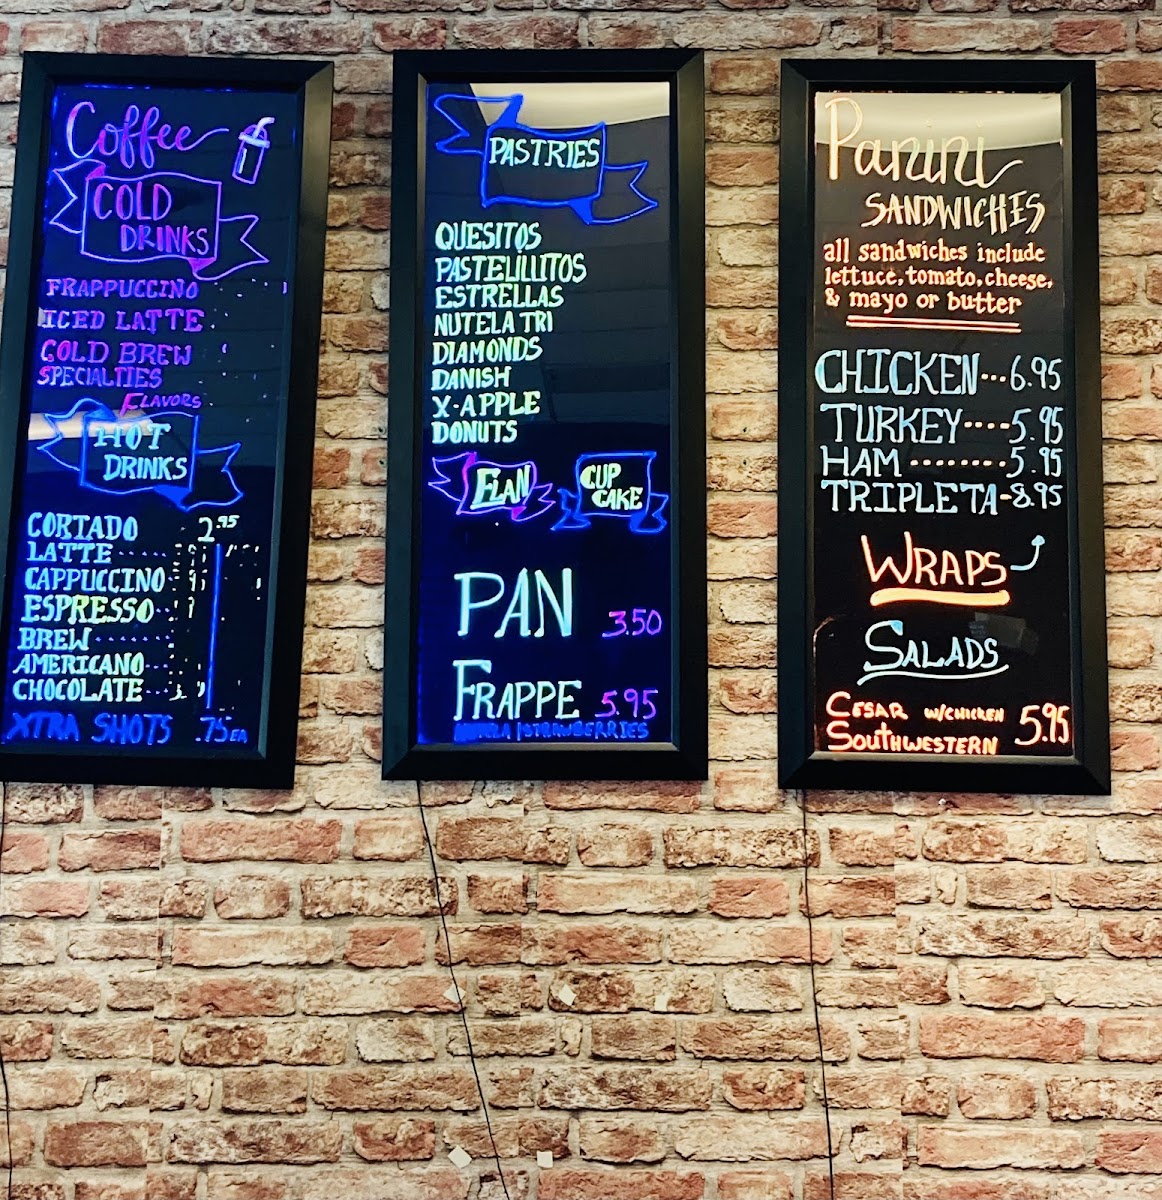 Coffee
COLD
DRINKS
FRAPPUCCINO
ICED LATTE
COLD BREW
SPECIALTIES
FLAVORS
HOT
DRINKS
CORTADO 2.95
LATTE
CAPPUCCINO
ESPRESSO
BREW
AMERICANO
CHOCOLATE
XTRA SHOTS .75 EA
PASTRIES
QUESITOS
PASTELILLITOS
ESTRELLAS
NUTELA TRI
DIAMONDS
DANISH
X-APPLE
DONUTS
FLAN
CUP
CAKE
PAN 3.50
FRAPPE 5.95
STRAWBERRIES
Panini
SANDWICHES
all sandwiches include
lettuce, tomato, cheese,
& mayo or butter
CHICKEN...6.95
TURKEY....5.95
HAM........5.95
TRIPLETA-8.95
WRAPS
SALADS
CESAR W/CHICKEN 5.95
SOUTHWESTERN